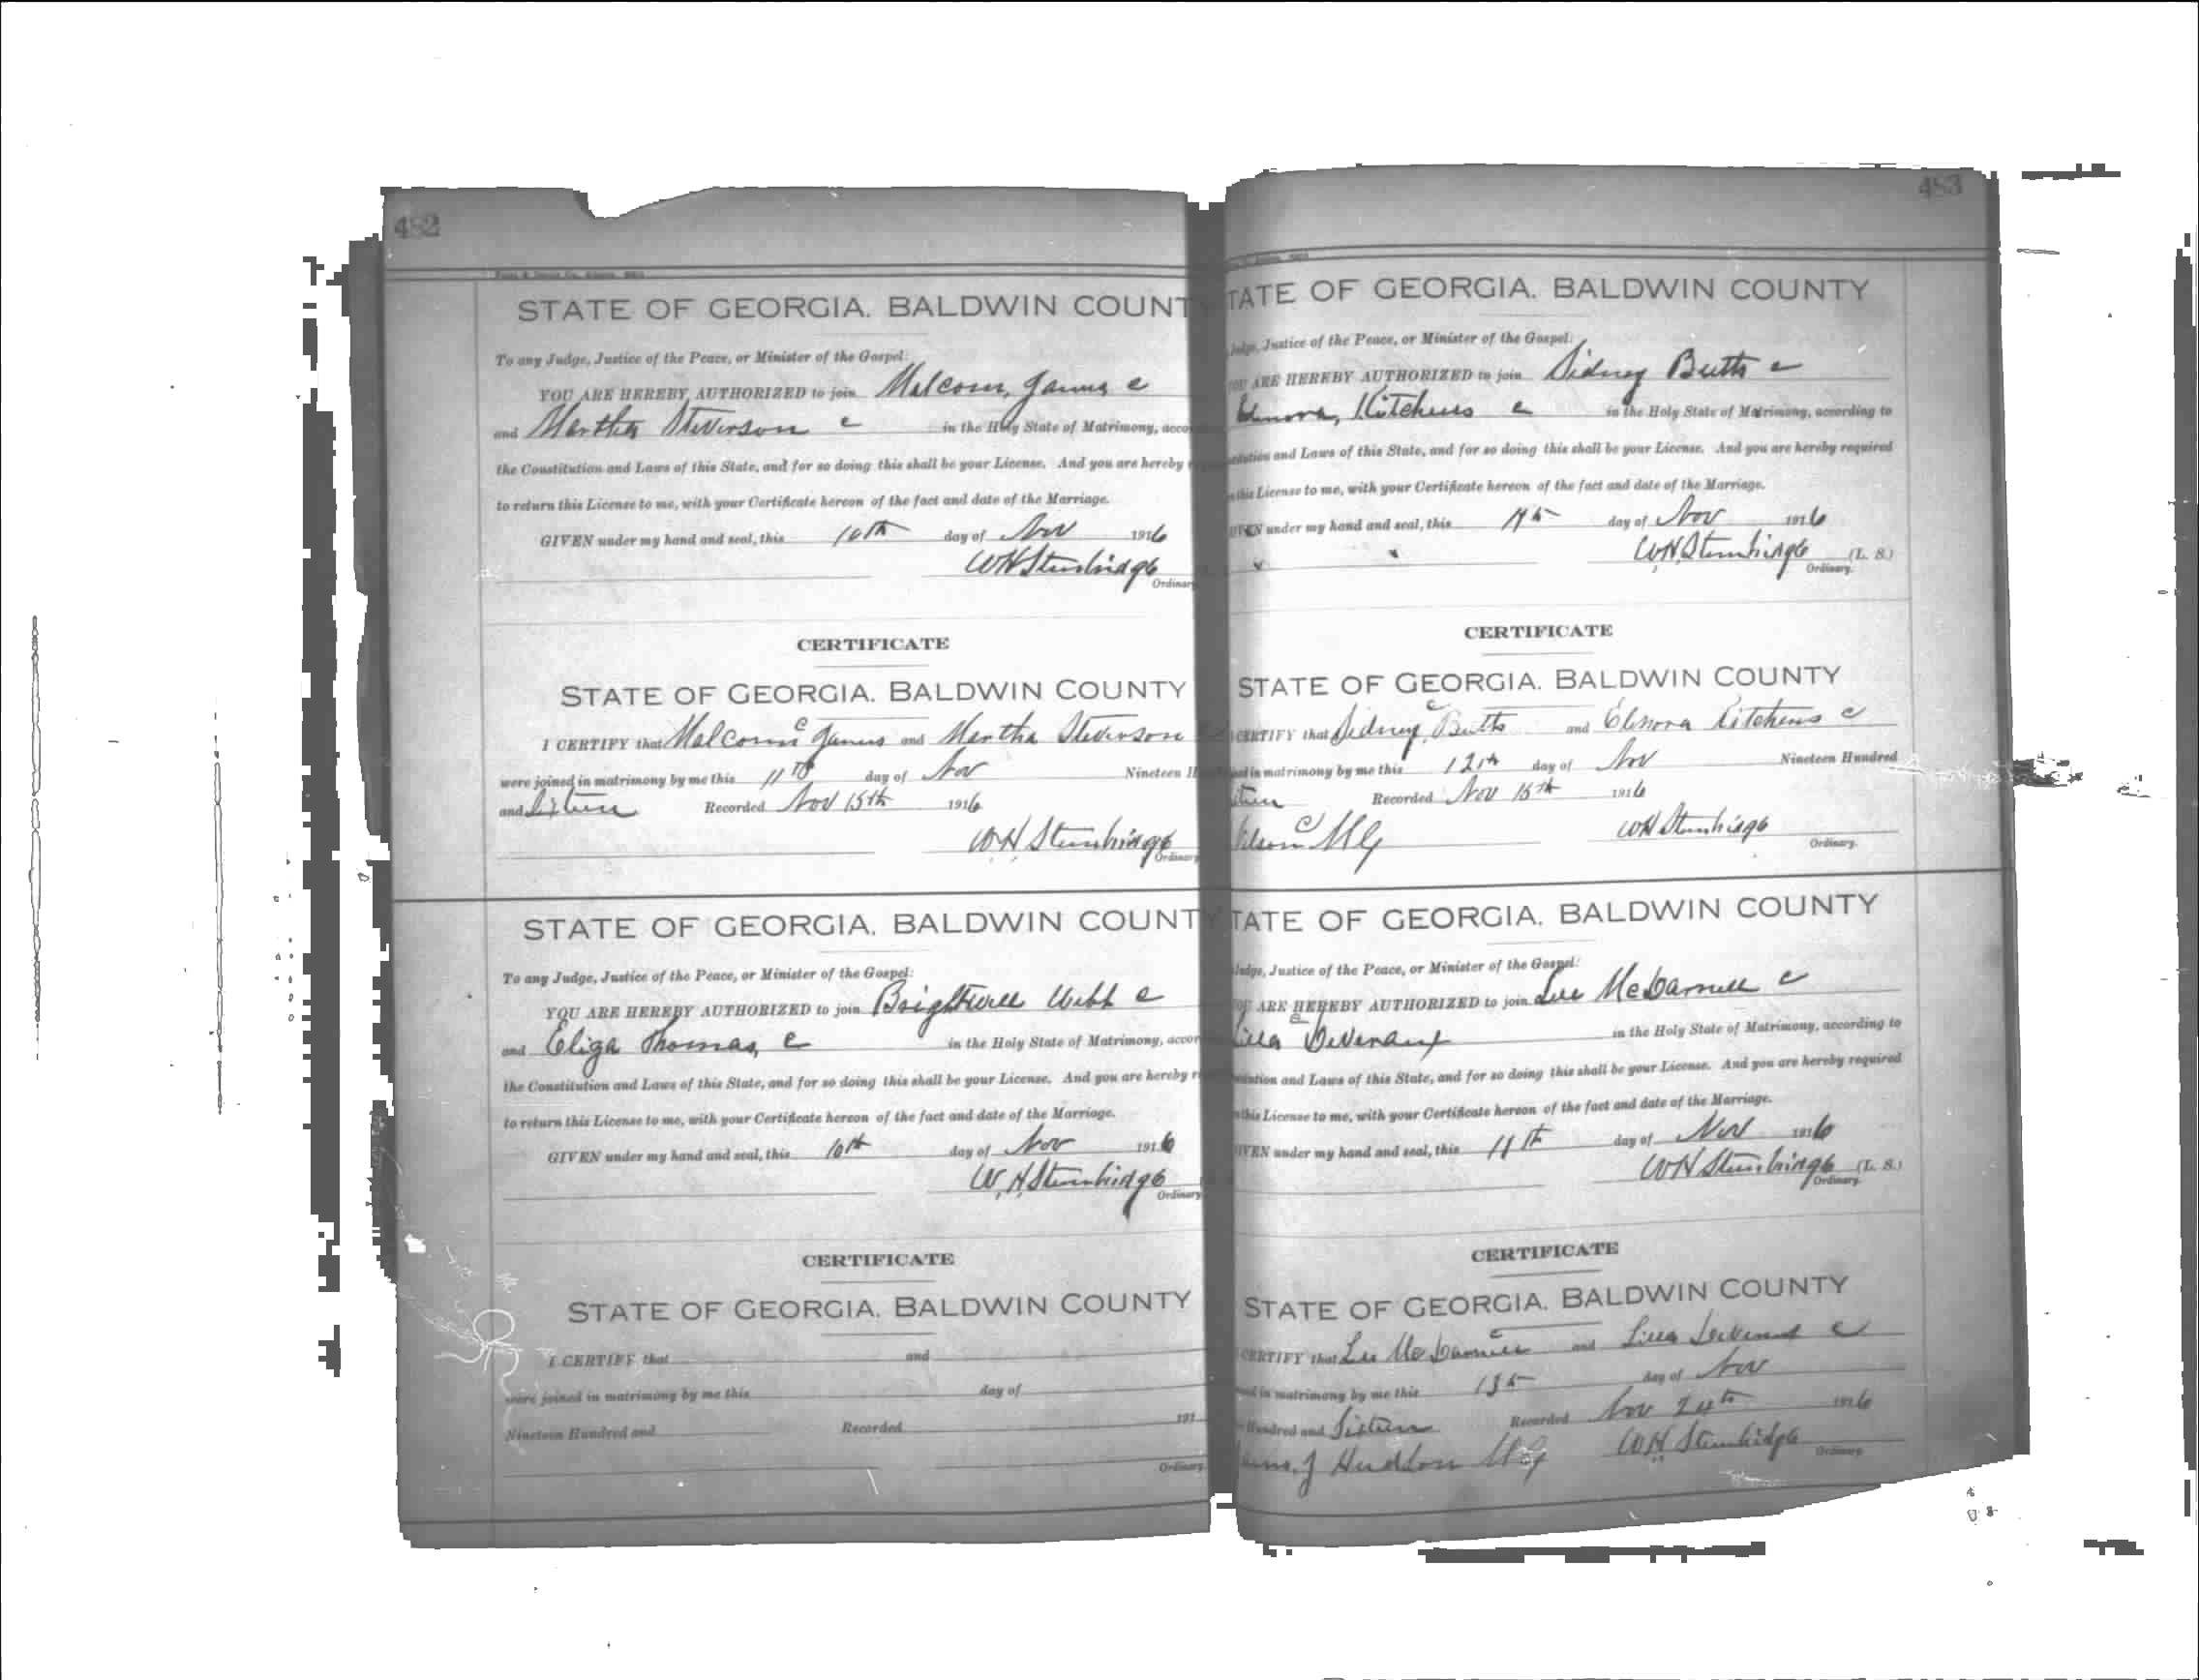 482
STATE OF GEORGIA. BALDWIN COUNT
To any Judge, Justice of the Peace, or Minister of the Gospel:
YOU ARE HEREBY AUTHORIZED to join Malcom, James c
and Martha Steverson c in the Holy State of Matrimony, acco
the Constitution and Laws of this State, and for so doing this shall be your License. And you are hereby
to return this License to me, with your Certificate hereon of the fact and date of the Marriage.
GIVEN under my hand and seal, this 10th day of Nov 1916
WH Stembridge
Ordinar
CERTIFICATE
STATE OF GEORGIA. BALDWIN COUNTY
I CERTIFY that Malcom c James and Martha Steverson
were joined in matrimony by me this 11th day of Nov Nineteen H
and Sixteen Recorded Nov 15th 1916
W.H. Stembridge
Ordinary
STATE OF GEORGIA. BALDWIN COUNTY
To any Judge, Justice of the Peace, or Minister of the Gospel:
YOU ARE HEREBY AUTHORIZED to join Brightwell Webb c
and Eliza Thomas, c in the Holy State of Matrimony, accor
the Constitution and Laws of this State, and for so doing this shall be your License. And you are hereby r
to return this License to me, with your Certificate hereon of the fact and date of the Marriage.
GIVEN under my hand and seal, this 10th day of Nov 1916
W.H. Stembridge
Ordinary
CERTIFICATE
STATE OF GEORGIA. BALDWIN COUNTY
I CERTIFY that and
were joined in matrimony by me this day of
Nineteen Hundred and Recorded 191
Ordinary
483
TATE OF GEORGIA. BALDWIN COUNTY
Judge, Justice of the Peace, or Minister of the Gospel:
YOU ARE HEREBY AUTHORIZED to join Sidney Butts c
Elenora, Kitchens c in the Holy State of Matrimony, according to
and Laws of this State, and for so doing this shall be your License. And you are hereby required
this License to me, with your Certificate hereon of the fact and date of the Marriage.
GIVEN under my hand and seal, this day of Nov 1916
W.H. Stembridge (L. S.)
Ordinary.
CERTIFICATE
STATE OF GEORGIA. BALDWIN COUNTY
CERTIFY that Sidney c Butts and Elenora Kitchens c
in matrimony by me this 12th day of Nov Nineteen Hundred
Recorded Nov 15th 1916
c MG WH Stembridge
Ordinary.
TATE OF GEORGIA. BALDWIN COUNTY
Judge, Justice of the Peace, or Minister of the Gospel:
YOU ARE HEREBY AUTHORIZED to join Lee McDaniell c
c in the Holy State of Matrimony, according to
and Laws of this State, and for so doing this shall be your License. And you are hereby required
this License to me, with your Certificate hereon of the fact and date of the Marriage.
GIVEN under my hand and seal, this 11th day of Nov 1916
WH Stembridge (L. S.)
Ordinary.
CERTIFICATE
STATE OF GEORGIA. BALDWIN COUNTY
CERTIFY that Lee McDaniell c and c
in matrimony by me this day of Nov
Hundred and Sixteen Recorded Nov 24th 1916
J Hudson MG WH Stembridge
Ordinary